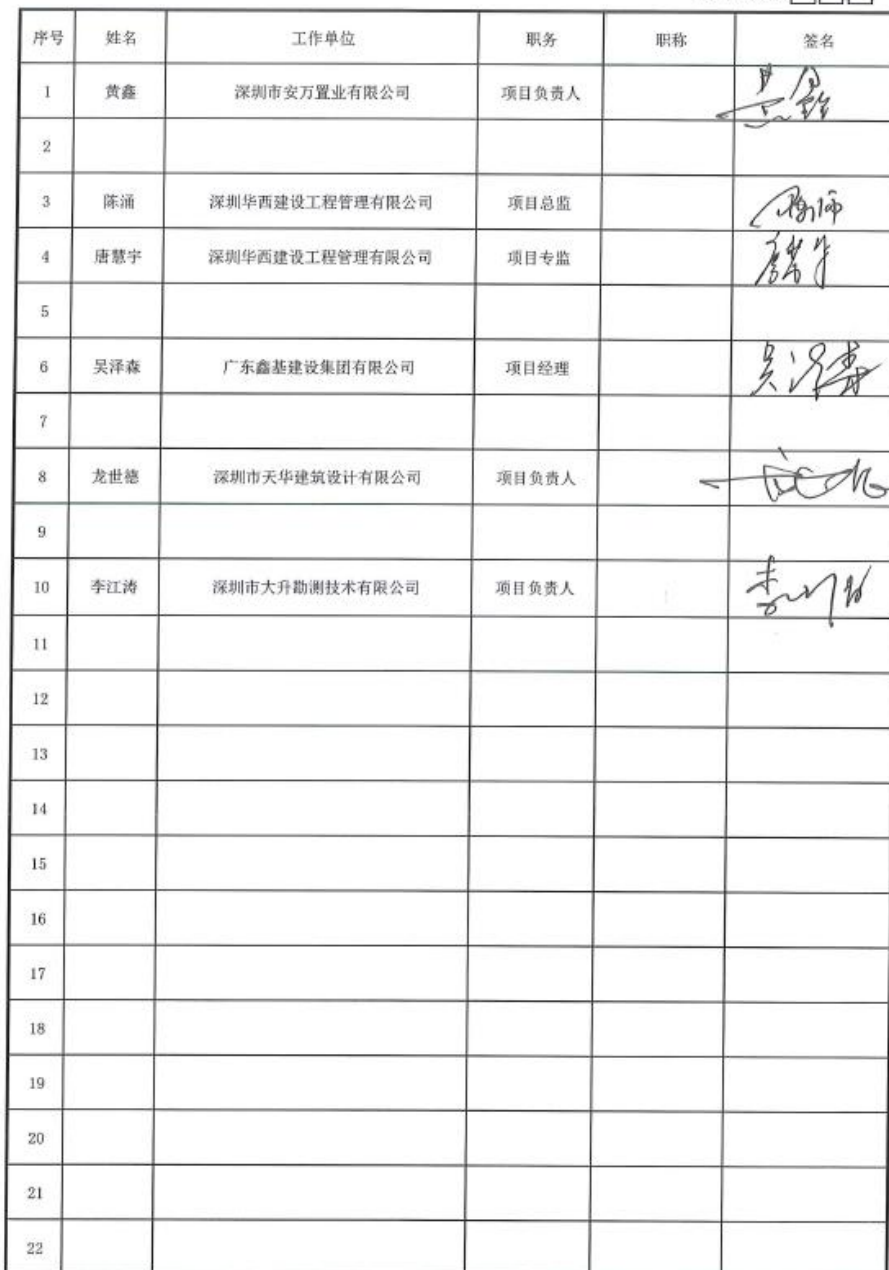 序号 姓名 工作单位 职务 职称 签名
1 黄鑫 深圳市安万置业有限公司 项目负责人 黄鑫
2
3 陈涌 深圳华西建设工程管理有限公司 项目总监
4 唐慧宇 深圳华西建设工程管理有限公司 项目专监
5
6 吴泽森 广东鑫基建设集团有限公司 项目经理 吴泽森
7
8 龙世德 深圳市天华建筑设计有限公司 项目负责人
9
10 李江涛 深圳市大升勘测技术有限公司 项目负责人
11
12
13
14
15
16
17
18
19
20
21
22